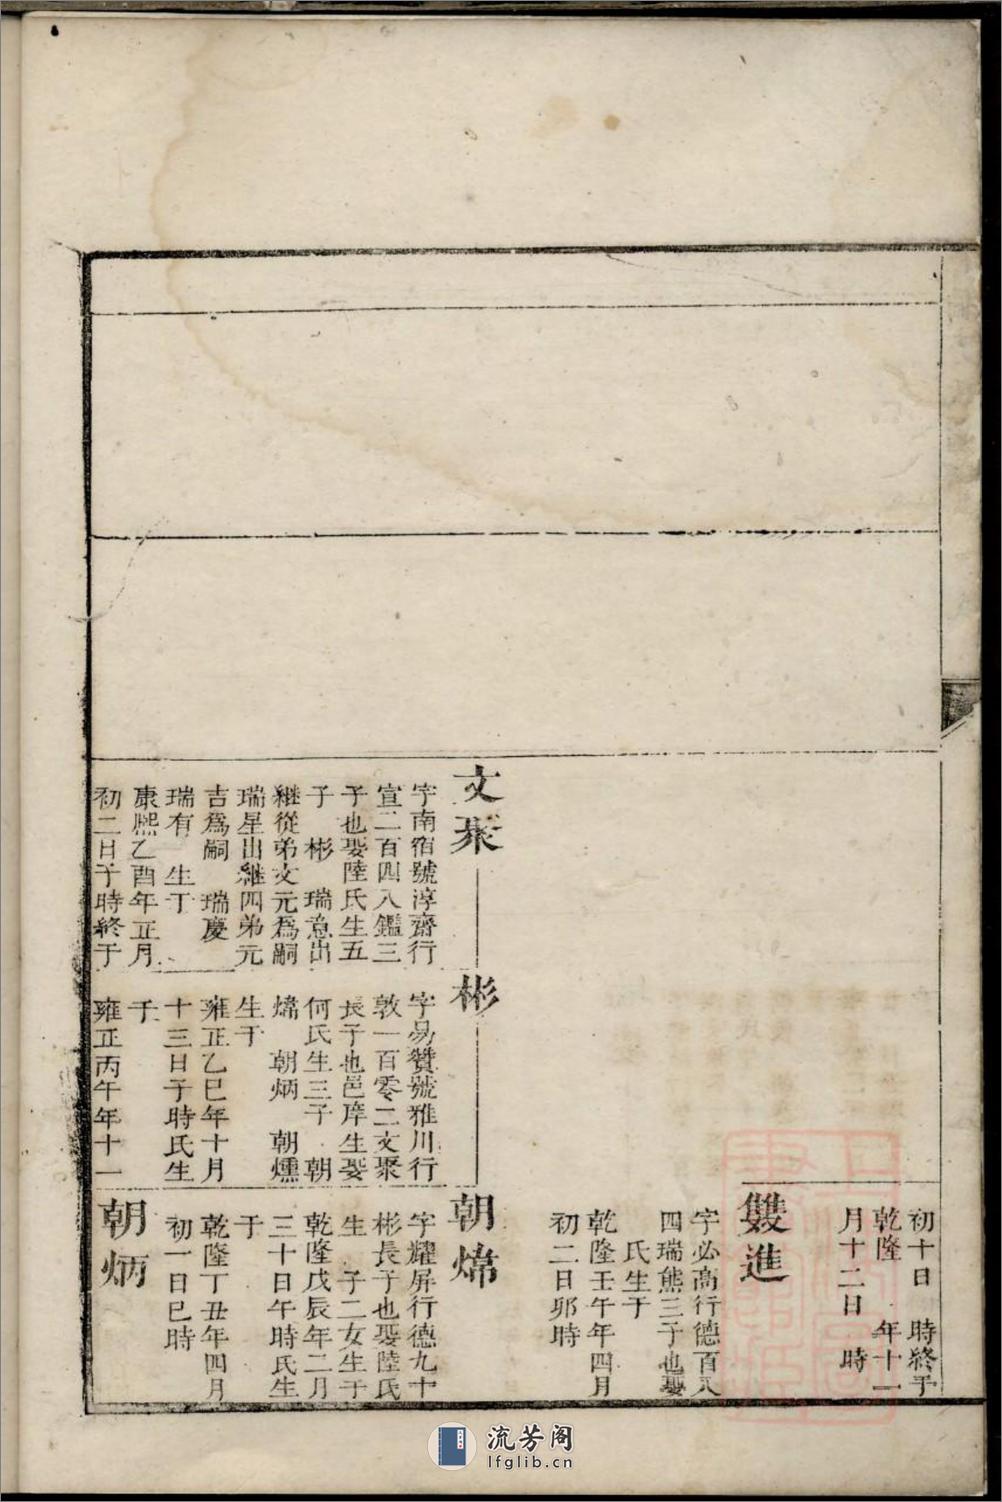 初十日 時終于
乾隆 年十一
月十二日 時
雙進
字必高行德百八
四瑞熊三子也娶
氏生于
乾隆壬午年四月
初二日卯時
文聚
字南宿號淳齋行
宣二百四八鑑三
子也娶陸氏生五
子 彬 瑞意出
継從弟文元為嗣
瑞星出継四弟元
吉爲嗣 瑞慶
瑞有 生于
康熙乙酉年正月
初二日子時終于
彬
字易贊號雅川行
敦一百零二文聚
長子也邑庠生娶
何氏生三子 朝
煒 朝炳 朝燻
生于
雍正乙巳年十月
十三日子時氏生
于
雍正丙午年十一
朝煒
字耀屏行德九十
彬長子也娶陸氏
生 子二女生于
乾隆戊辰年二月
三十日午時氏生
于
乾隆丁丑年四月
初一日巳時
朝炳
流芳阁
lfglib.cn